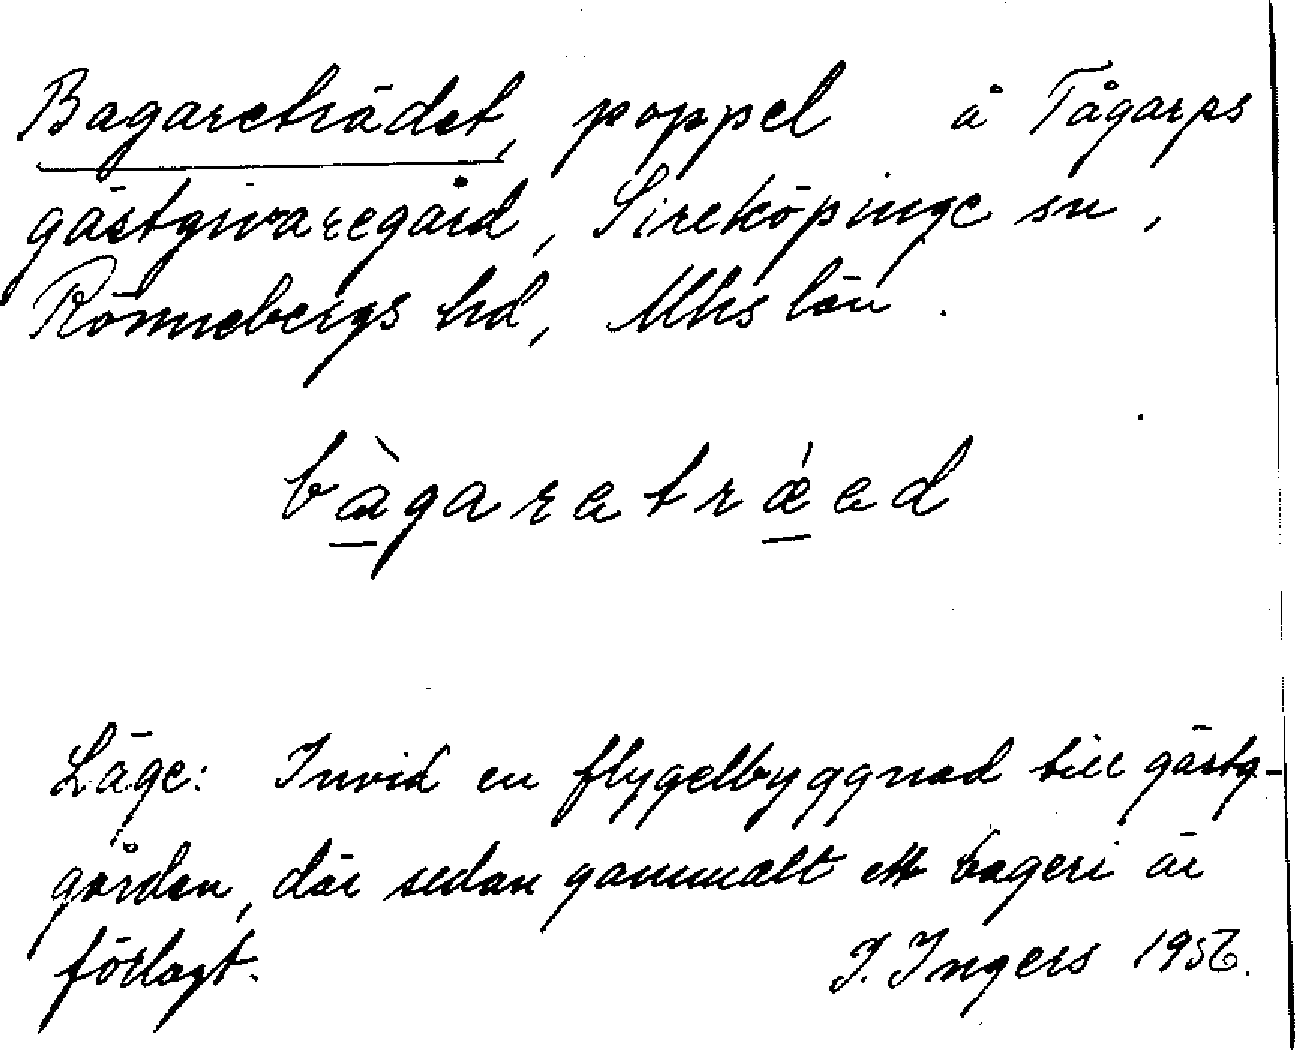 Bagareträdet, poppel å Tågarps
gästgivaregård, Sireköpinge sn,
Rönnebergs hd, Mhs län.
bàgaretrǽed
Läge: Invid en flygelbyggnad till gästg-
gården, där sedan gammalt ett bageri är
förlagt.
I. Ingers 1956.